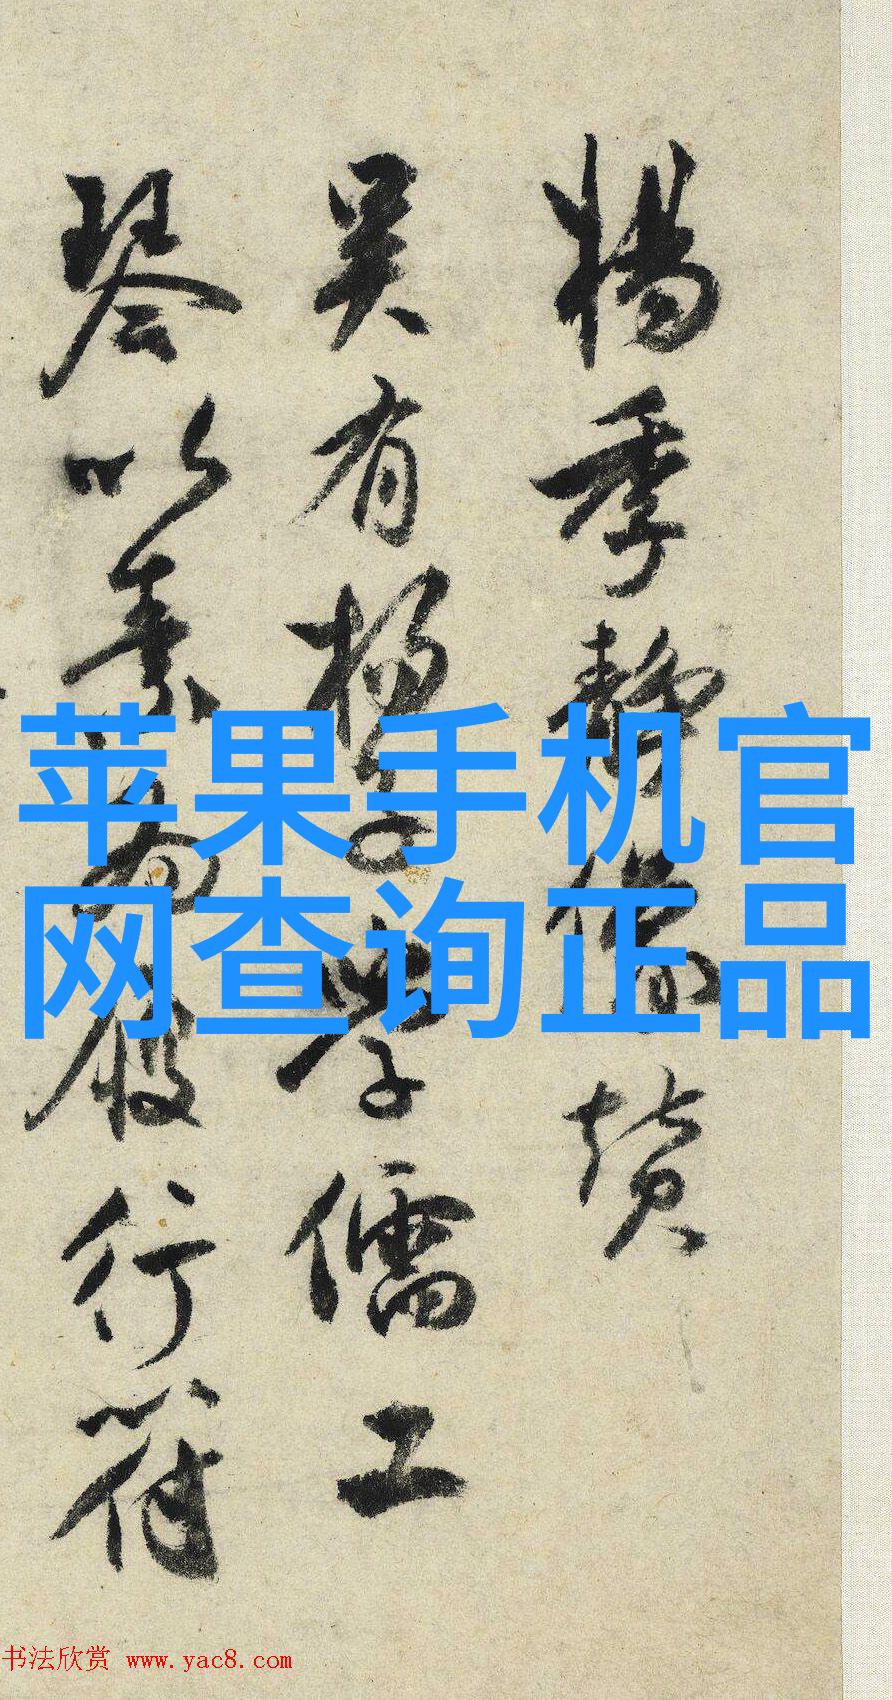 楊季静像赞
吴有楊子學儒工
琴以素为行符
苹果手机官
网查询正品
书法欣赏 www.yac8.com